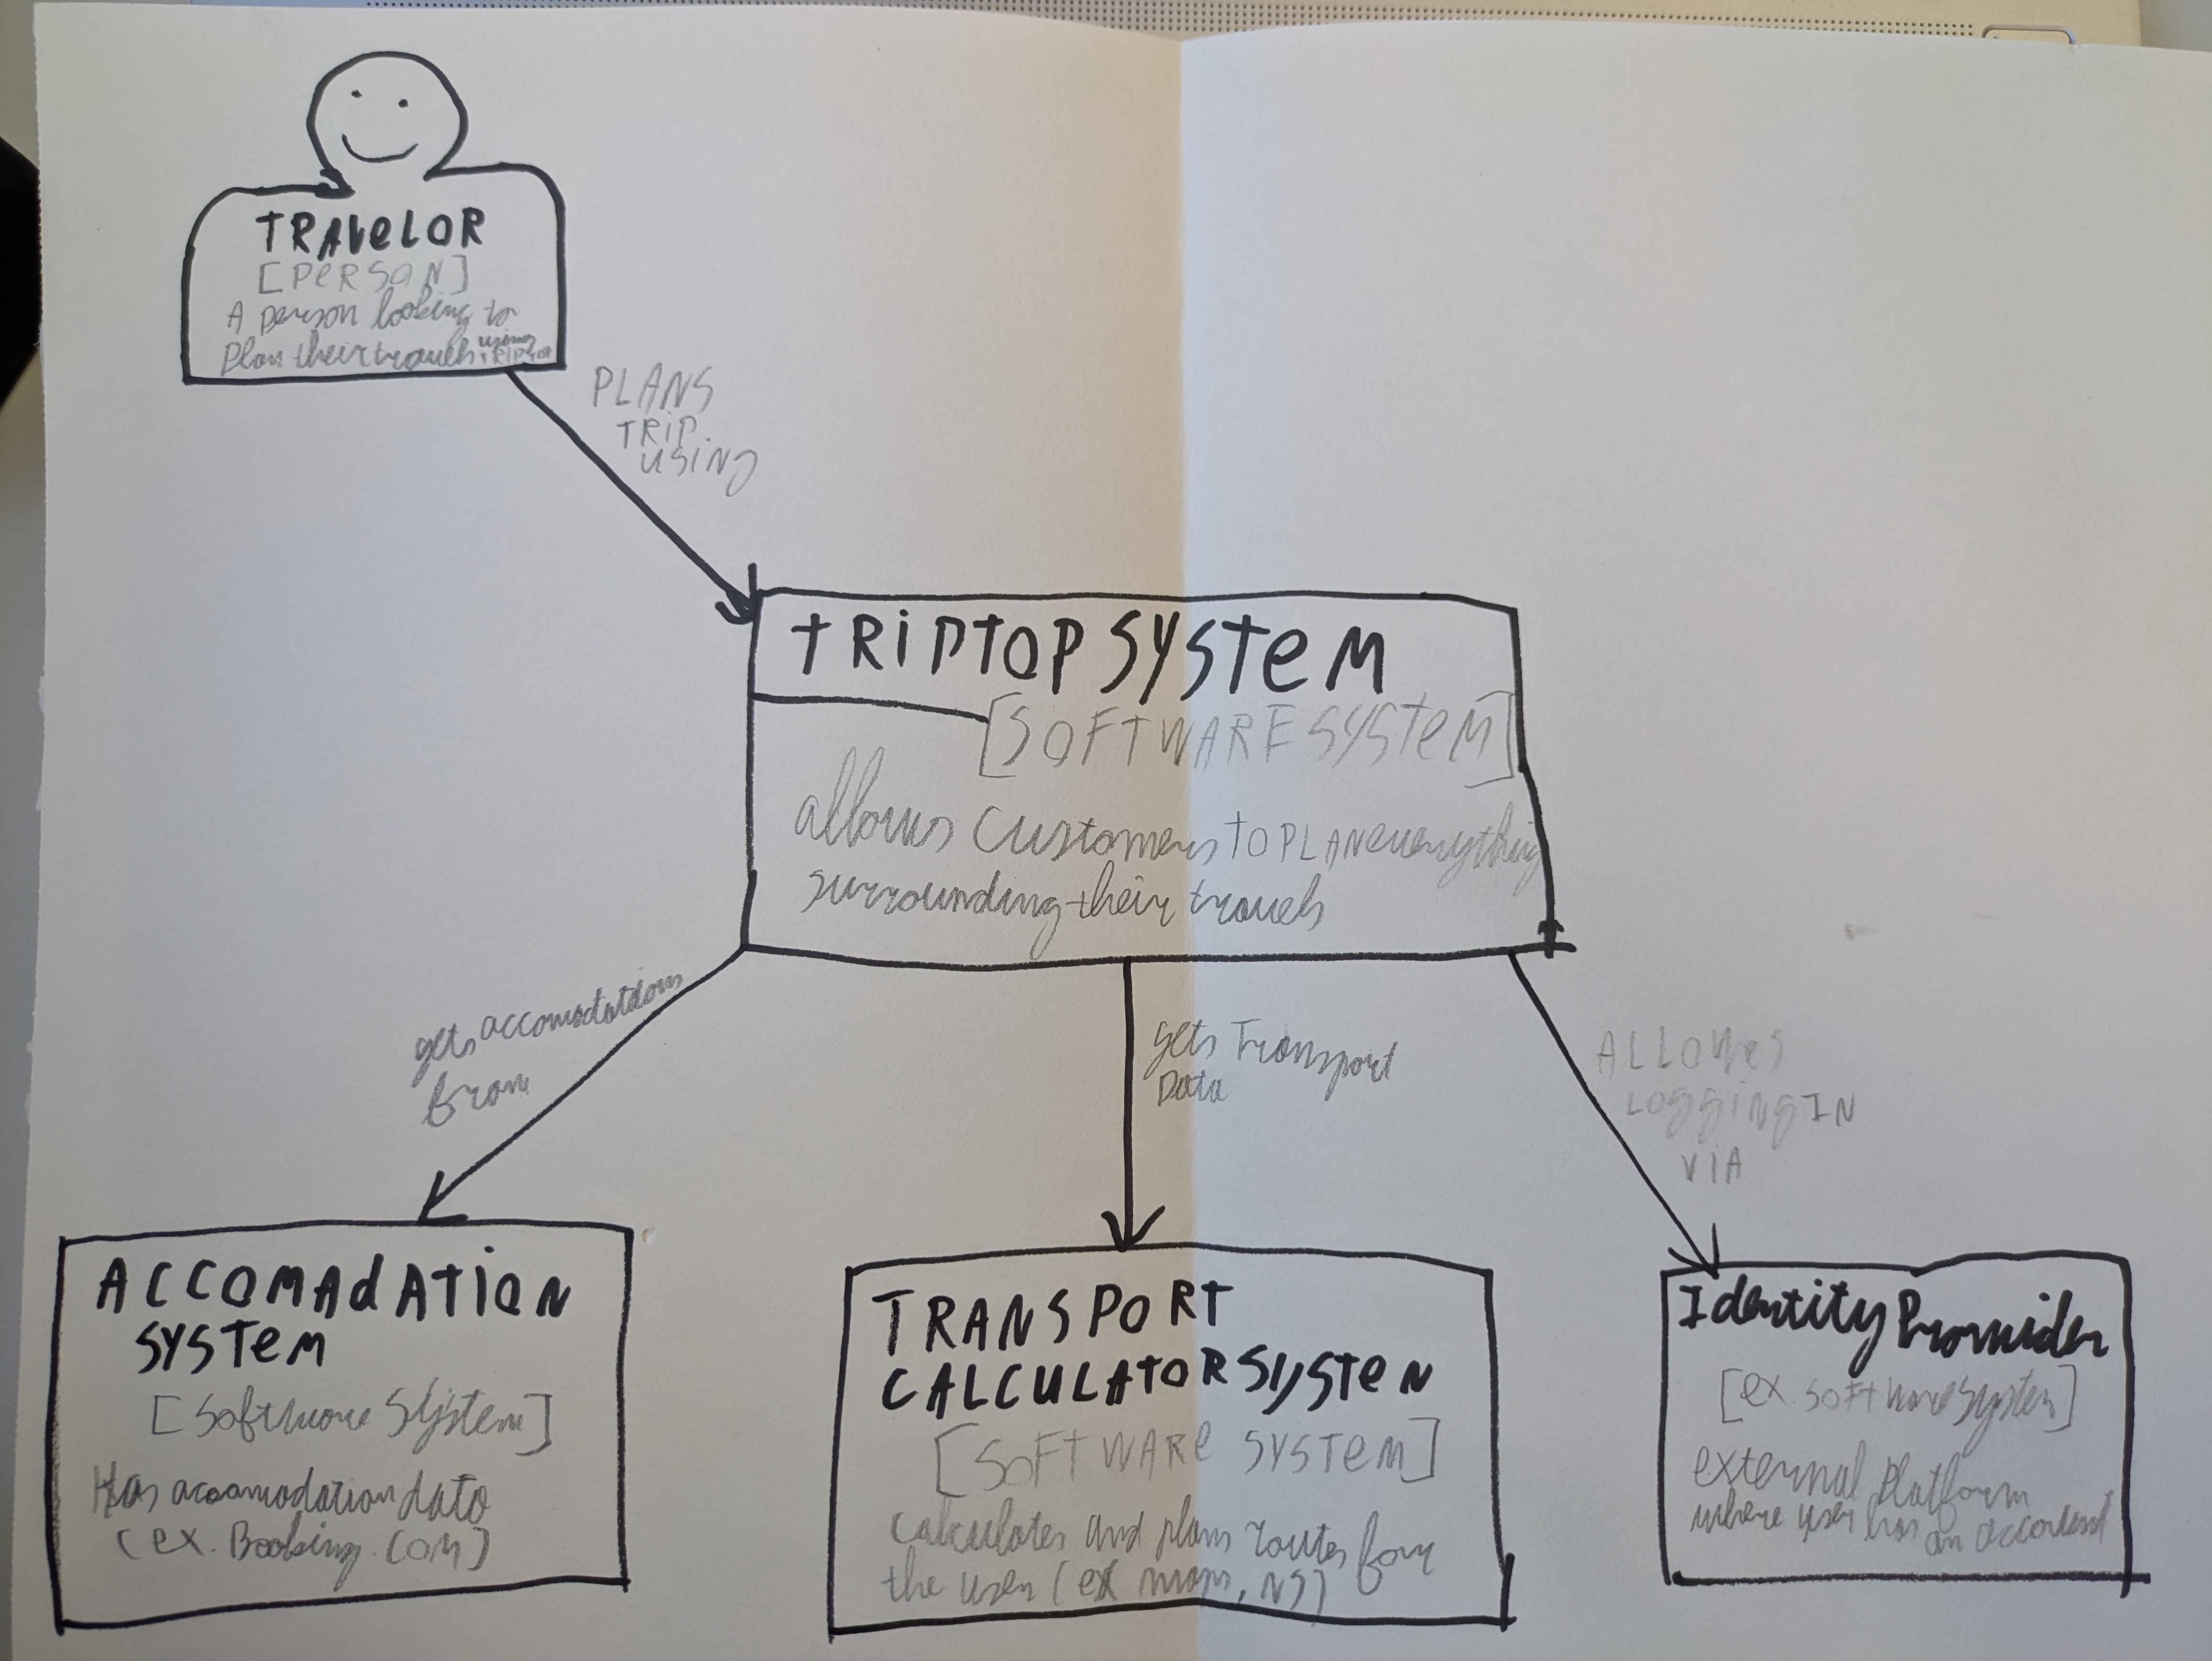 TRAVELOR
[PERSON]
A person looking to
plan their travels using
TRIPTOP
PLANS
TRIP
USING
TRIPTOP SYSTEM
[SOFTWARE SYSTEM]
allows customers TO PLAN everything
surrounding their travels
gets accomodations
from
gets Transport
Data
ALLOWES
LOGGING IN
VIA
ACCOMADATION
SYSTEM
[Software System]
Has accomodation data
(ex. Booking.com)
TRANSPORT
CALCULATOR SYSTEM
[SOFTWARE SYSTEM]
Calculates and plans routes for
the user (ex maps, NS)
Identity Provider
[ex. SOFTWARE System]
external Platform
where user has an account